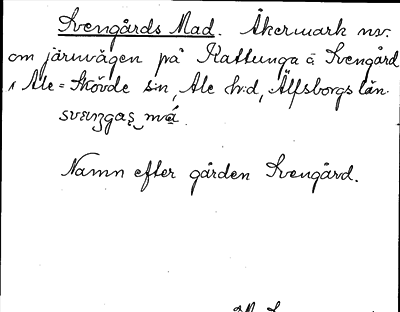 Svengårds Mad. Åkermark nv.
om järnvägen på Kattunga ä Svengård
i Ale-Skövde sn, Ale hd, Älfsborgs län.
Namn efter gården Svengård.